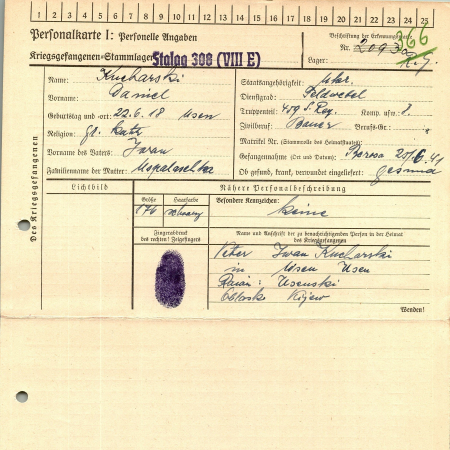 1 2 3 4 5 6 7 8 9 10 11 12 13 14 15 16 17 18 19 20 21 22 23 24 25
Personalkarte I: Personelle Angaben
Kriegsgefangenen-Stammlager: Stalag 308 (VIII E)
Beschriftung der Erkennungsmarke
Nr. 2093
266
Lager:
Des Kriegsgefangenen
Name: Kucharski
Vorname: Daniel
Geburtstag und -ort: 22.6.18 Usen
Religion: gr. kath
Vorname des Vaters: Iwan
Familienname der Mutter:
Staatsangehörigkeit: ukr.
Dienstgrad: Feldwebel
Truppenteil: 459 S. Reg. Komp. usw.: 8.
Zivilberuf: Bauer Berufs-Gr.:
Matrikel Nr. (Stammrolle des Heimatstaates):
Gefangennahme (Ort und Datum): 25/6 41
Ob gesund, krank, verwundet eingeliefert: gesund
Lichtbild
Nähere Personalbeschreibung
Größe
Haarfarbe
Besondere Kennzeichen:
170 schwarz
keine
Fingerabdruck
des rechten! Zeigefingers
Name und Anschrift der zu benachrichtigenden Person in der Heimat
des Kriegsgefangenen
Vater Iwan Kucharski
in Usen
Raion: Usenski
Oblasko Kijew
Wenden!